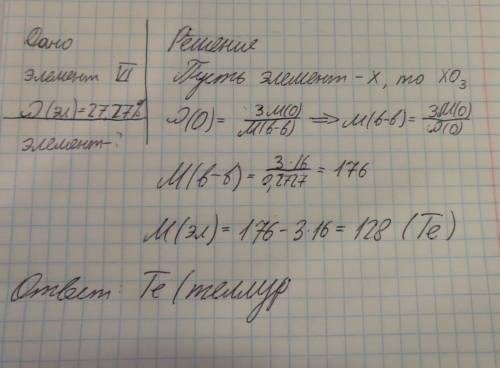 Дано
элемент VI
D(эл)=27,27%
элемент-?
Решения
Пусть элемент - x, то XO₃
D(O) = 3M(O)/M(в-в) ⟹ M(в-в) = 3M(O)/D(O)
M(в-в) = 3·16/0,2727 = 176
M(эл) = 176 - 3·16 = 128 (Te)
Ответ: Te (теллур